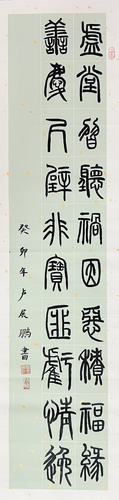 虛堂習聽禍因惡積福緣
善慶尺璧非寶匪虧情逸
癸卯年卢展鵬書